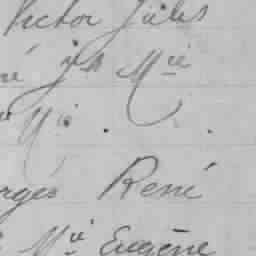 Victor Jules
né Jh Mie
Mie .
rges René
Mie Eugène